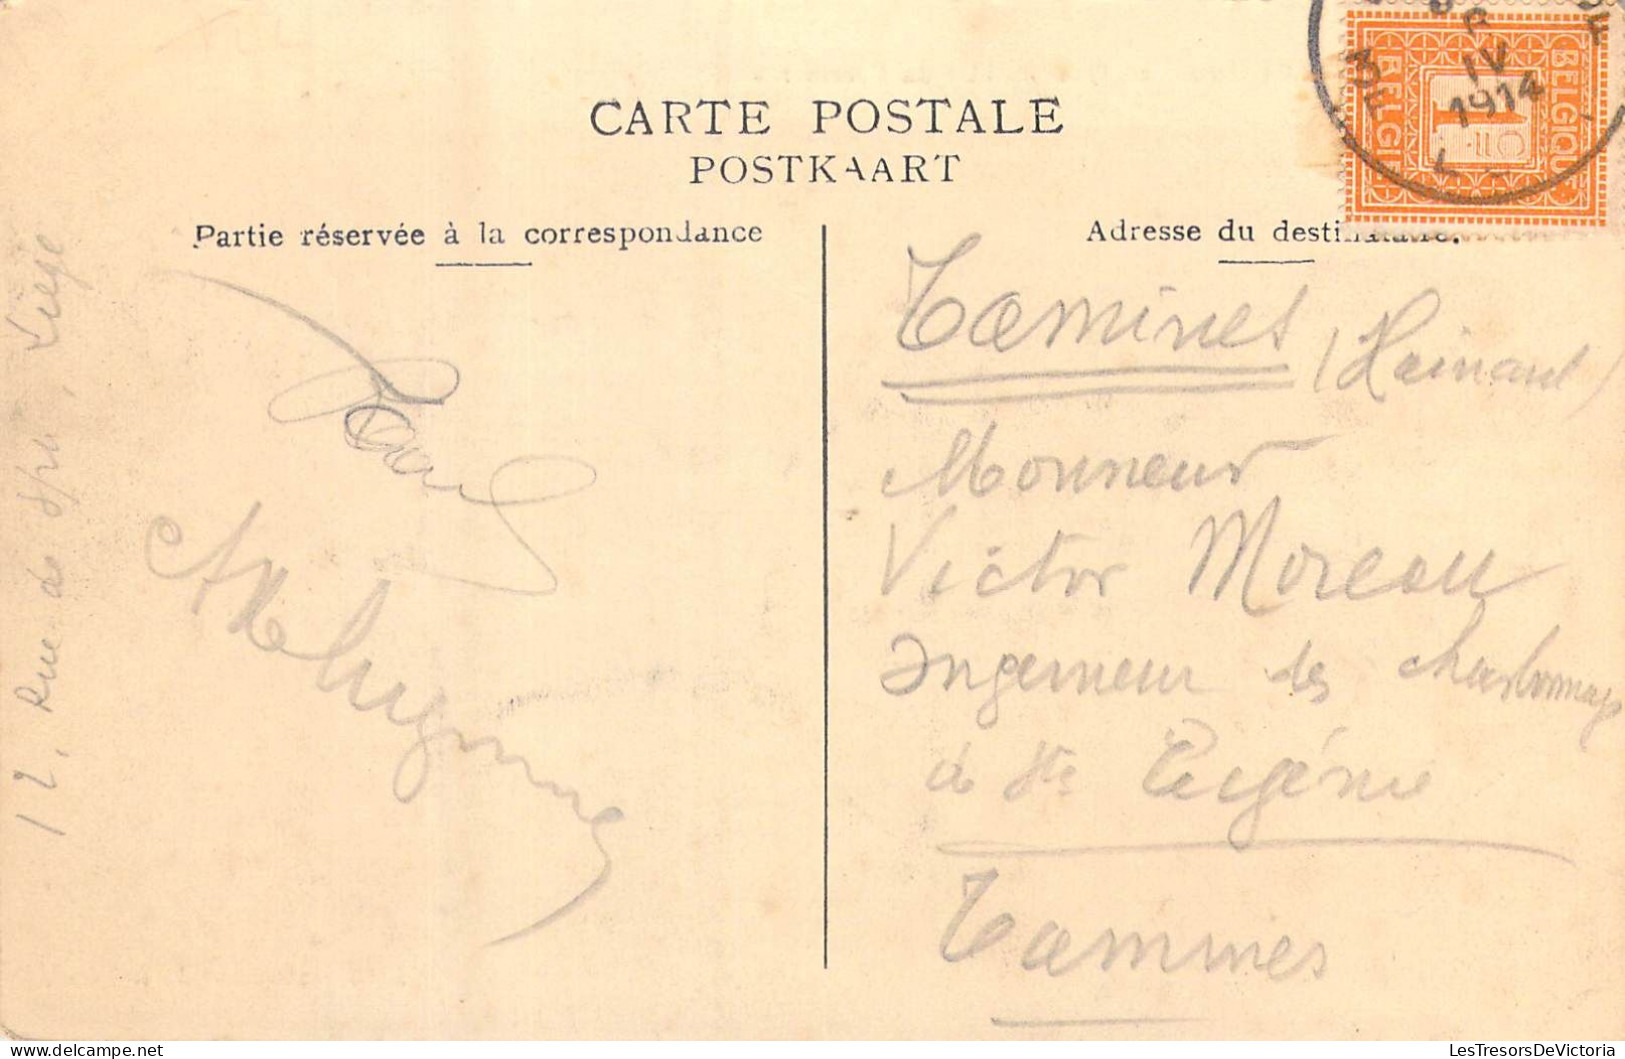 CARTE POSTALE
POSTKAART
Partie réservée à la correspondance
Adresse du destinataire.
BELGIQUE
BELGIË
1
IV
1914
12, Rue de Spa, Liège
Tamines (Hainaut)
Monsieur
Victor Moreau
Ingénieur des charbonnages
à Ste Eugénie
Tamines
LesTresorsDeVictoria